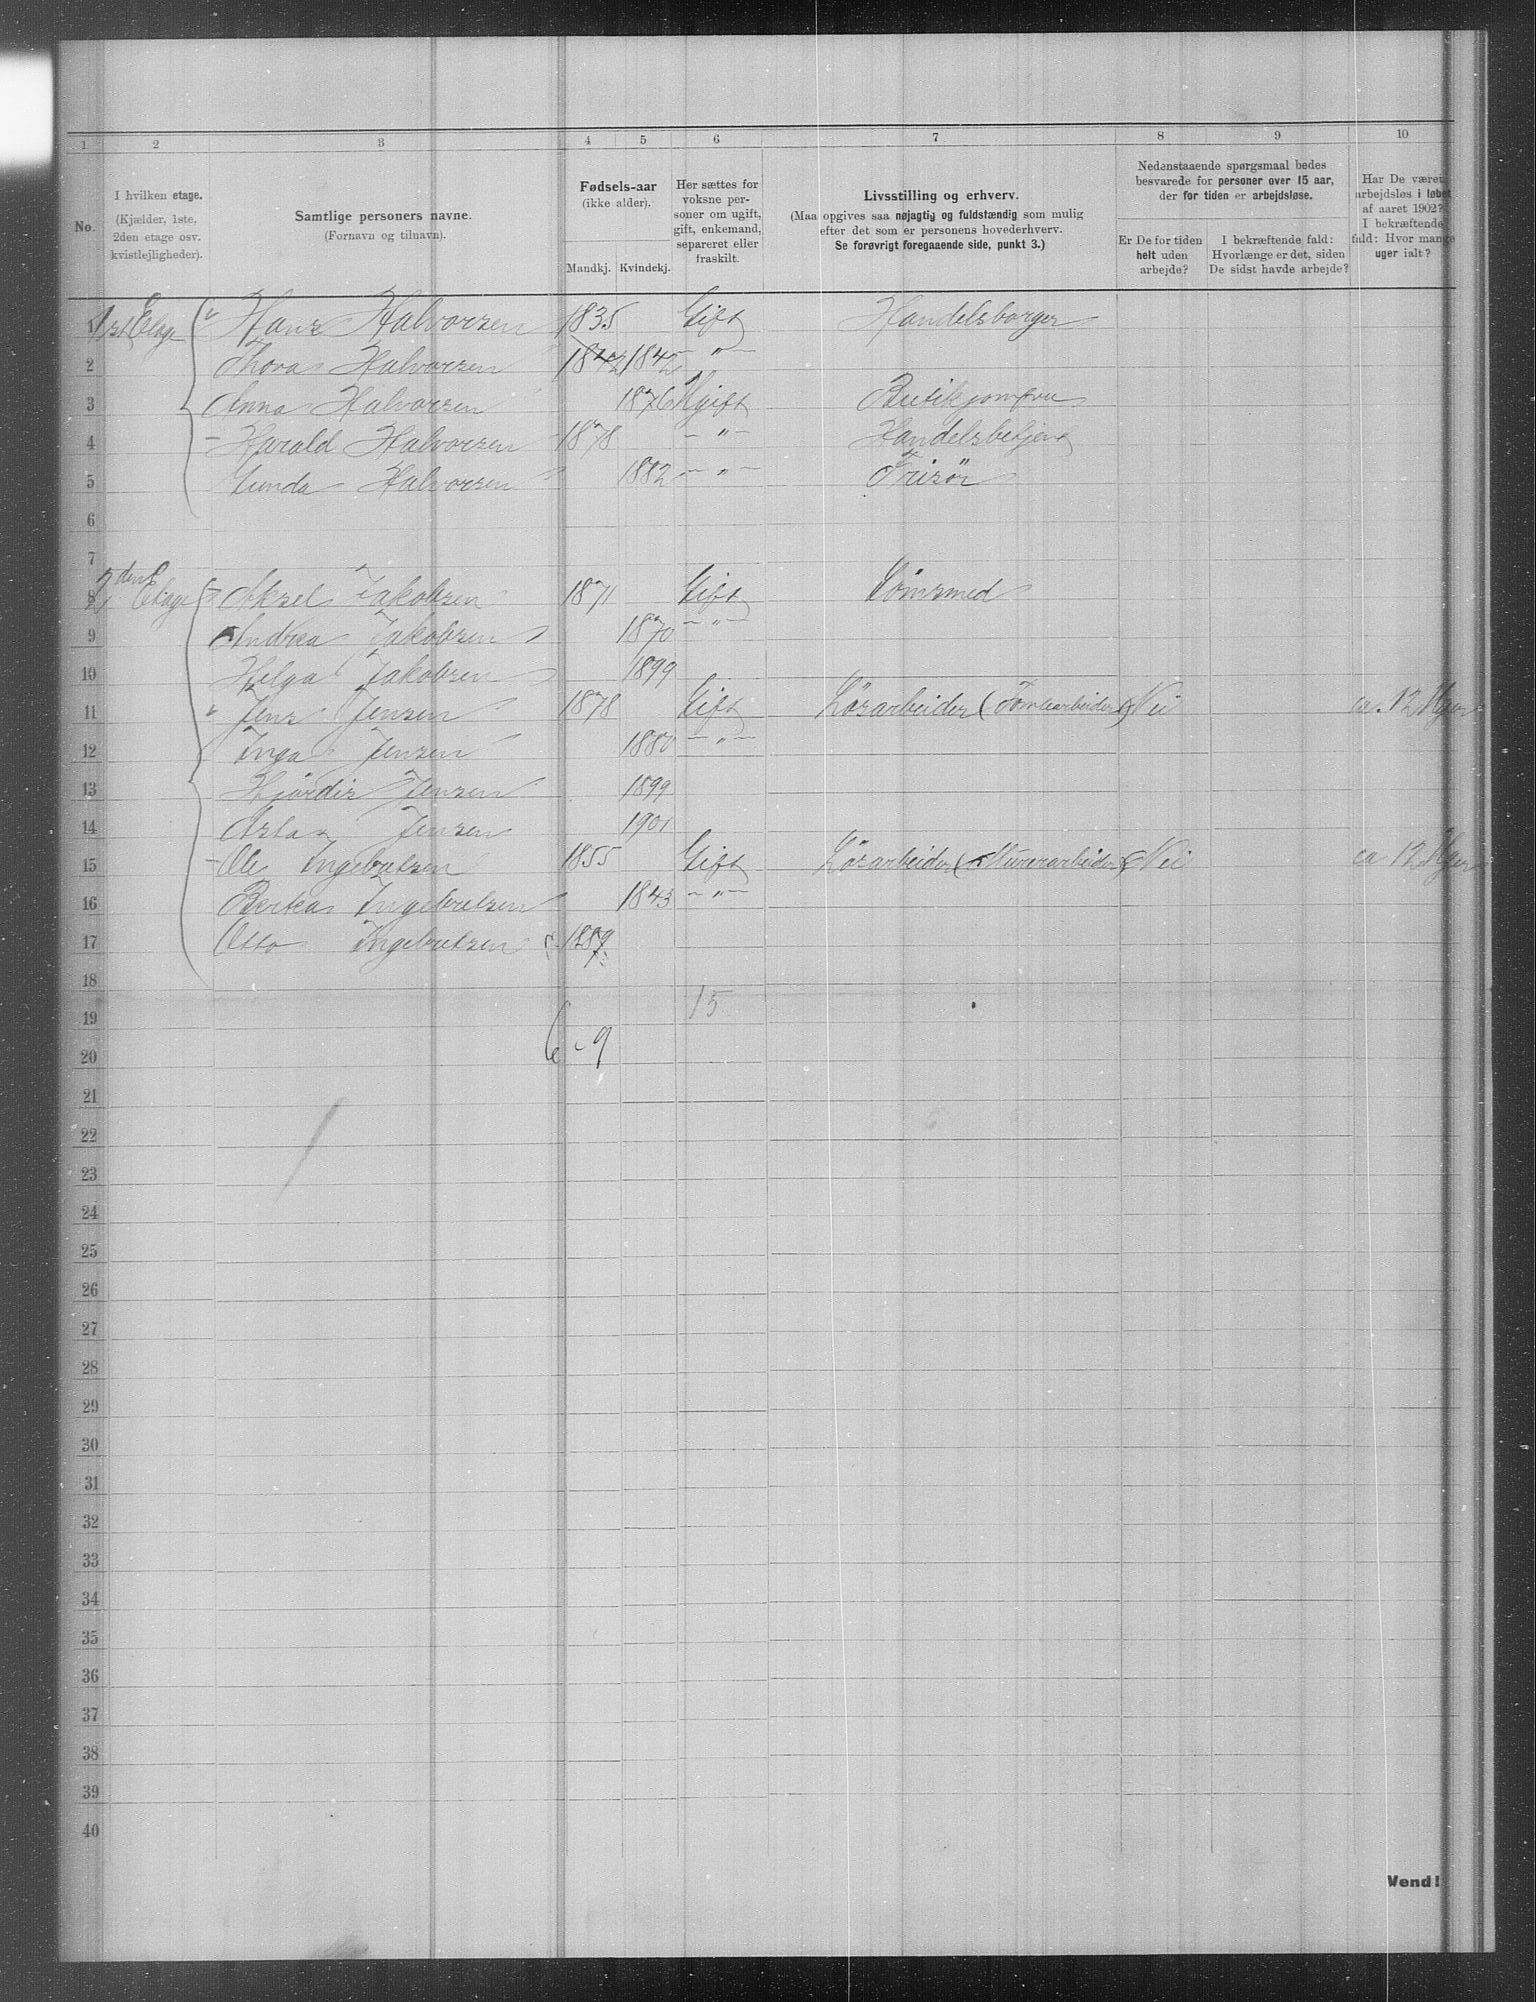 1 2 3 4 5 6 7 8 9 10
No.
I hvilken etage.
(Kjælder, 1ste,
2den etage osv.
kvistlejligheder).
Samtlige personers navne.
(Fornavn og tilnavn).
Fødsels-aar
(ikke alder).
Mandkj. Kvindekj.
Her sættes for
voksne per-
soner om ugift,
gift, enkemand,
separeret eller
fraskilt.
Livsstilling og erhverv.
(Maa opgives saa nøjagtig og fuldstændig som mulig
efter det som er personens hovederhverv.
Se forøvrigt foregaaende side, punkt 3.)
Nedenstaaende spørgsmaal bedes
besvarede for personer over 15 aar,
der for tiden er arbejdsløse.
Er De for tiden
helt uden
arbejde?
I bekræftende fald:
Hvorlænge er det, siden
De sidst havde arbejde?
Har De været
arbejdsløs i løbet
af aaret 1902?
I bekræftende
fald: Hvor mange
uger ialt?
1 1ste Etage Hans Halvorsen 1835 Gift Handelsborger
2 Thora Halvorsen 1842 1842 – „ –
3 Anna Halvorsen 1876 Ugift Butikjomfru
4 – Harald Halvorsen 1878 – „ – Handelsbetjent
5 Gunda Halvorsen 1882 – „ – Frisør
6
7
8 2den Etage – Aksel Jakobsen 1871 Gift Lømsmed
9 Andrea Jakobsen 1870 – „ –
10 Helga Jakobsen 1899
11 Jens Jensen 1878 Gift Løsarbeider (Tomtearbeider) Nei ca. 12 Uger
12 Inga Jensen 1880 – „ –
13 Hjørdis Jensen 1899
14 Asta Jensen 1901
15 – Ole Ingebretsen 1855 Gift Løsarbeider (Murerarbeider) Nei ca 12 Uger
16 Berta Ingebretsen 1843 – „ –
17 Otto Ingebretsen 1889
18
19 15
20 6 - 9
21
22
23
24
25
26
27
28
29
30
31
32
33
34
35
36
37
38
39
40
Vend!